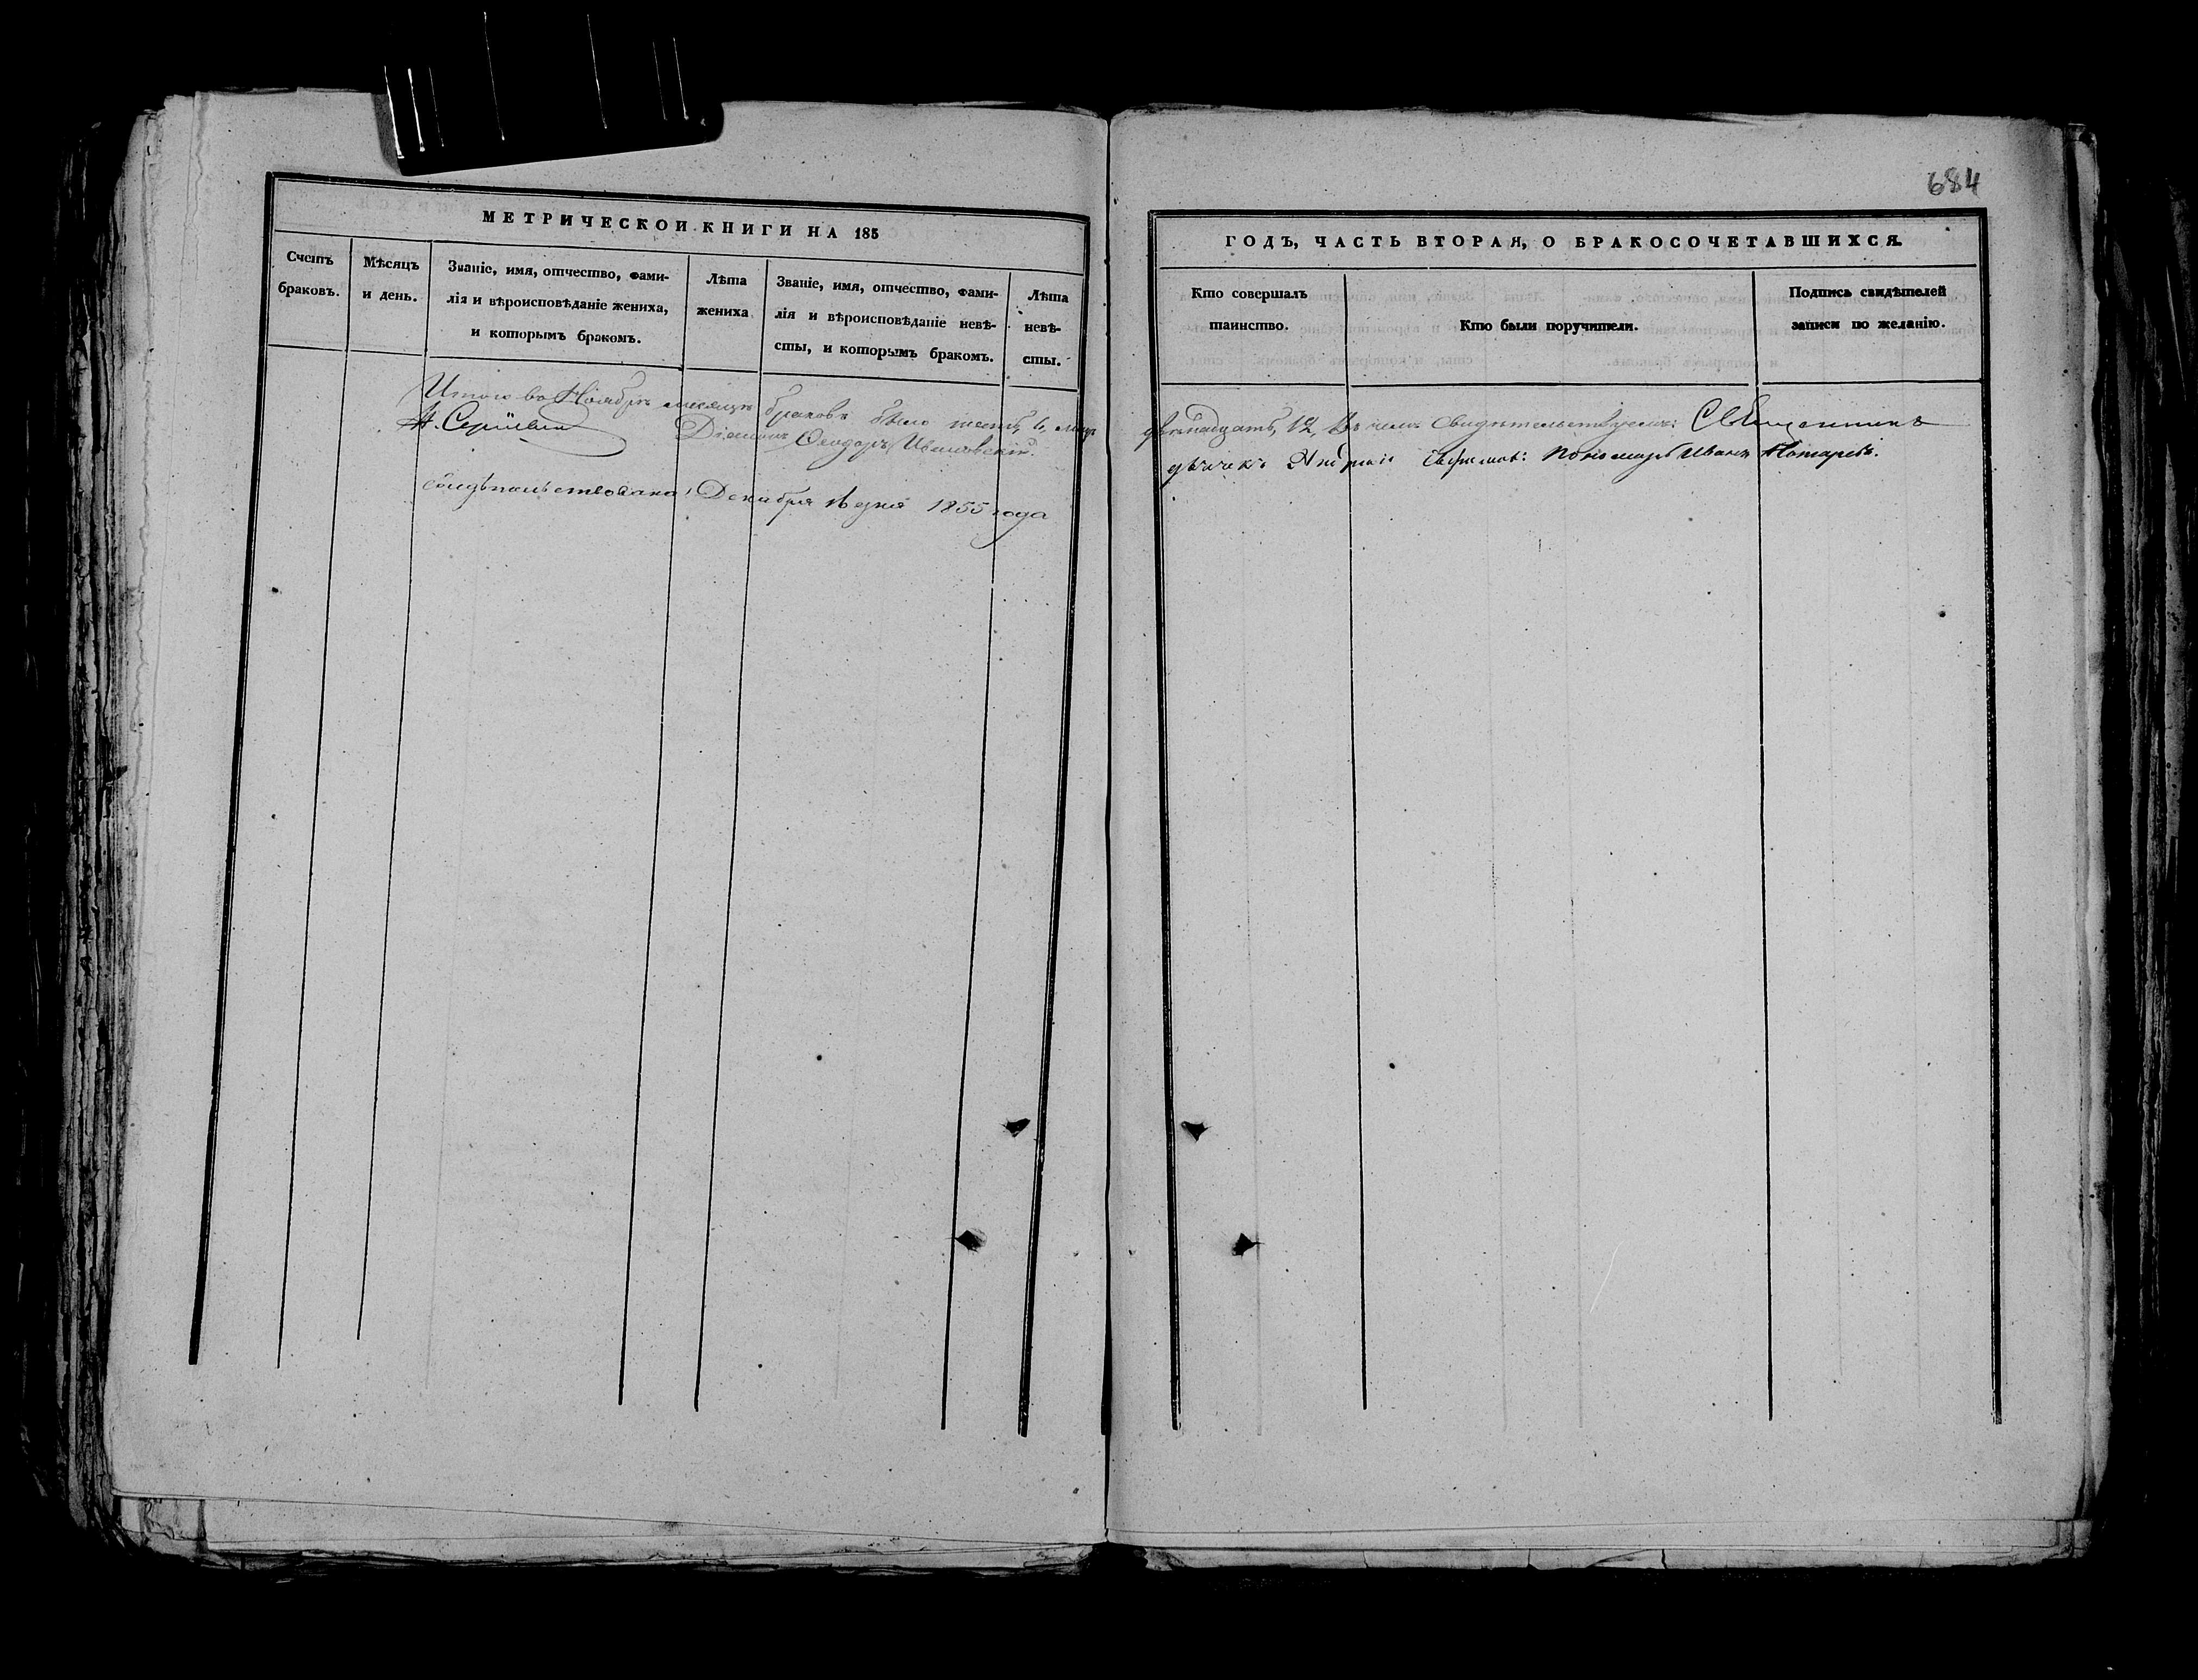 684
МЕТРИЧЕСКОЙ КНИГИ НА 185
Счетъ браковъ.
Мѣсяцъ и день.
Званіе, имя, отчество, фами-
лія и вѣроисповѣданіе жениха,
и которымъ бракомъ.
Лѣта
жениха
Званіе, имя, отчество, фами-
лія и вѣроисповѣданіе невѣ-
сты, и которымъ бракомъ.
Лѣта
невѣ-
сты.
Итого во Ноябрѣ мѣсяцѣ браковъ было шесть, 6, лицъ
Діаконъ Ѳеодоръ
свидѣтельствовано, Декабря дня 1855 года
ГОДЪ, ЧАСТЬ ВТОРАЯ, О БРАКОСОЧЕТАВШИХСЯ.
Кто совершалъ
таинство.
Кто были поручители.
Подпись свидѣтелей
записи по желанію.
двѣнадцать, 12, Въ чемъ свидѣтельствуемъ: Священникъ
дьячекъ Андрей Пономарь Иванъ